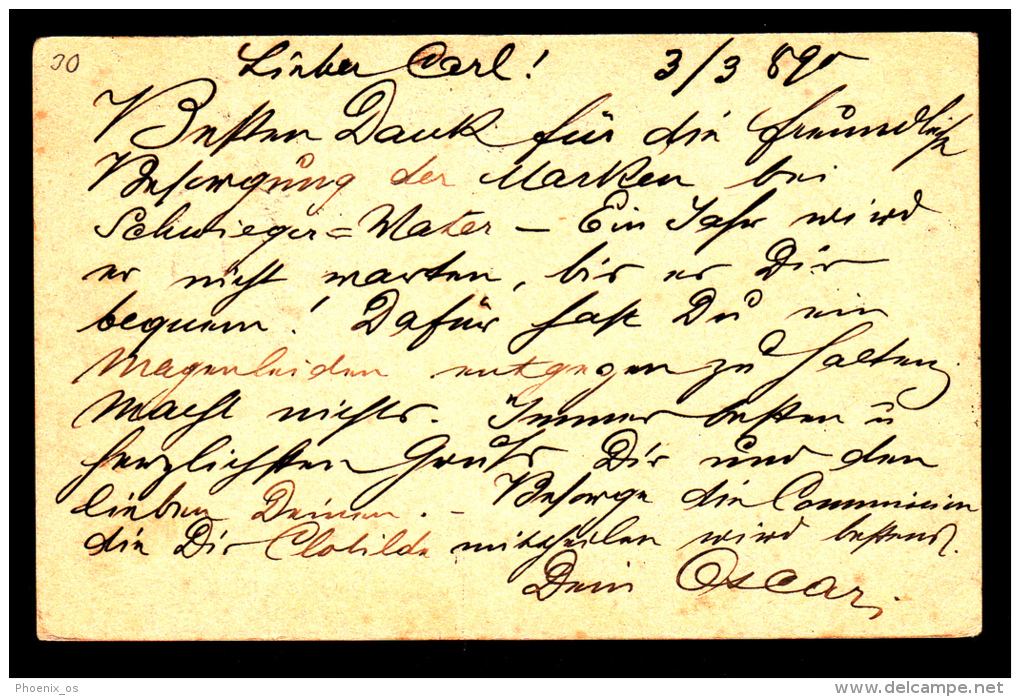 30
Lieber Carl! 3/3 890
Besten Dank für die freundliche
Besorgung der Marken bei
Schwieger=Vater – Ein Jahr wird
er nicht warten, bis es Dir
bequem! Dafür hast Du ein
Magenleiden entgegen zu halten,
Macht nichts. Immer besten u
herzlichsten Gruß Dir und den
lieben Deinen. – Besorge die Commission
die Dir Clotilde mittheilen wird bestens.
Dein Oscar.
Phoenix_os
www.delcampe.net